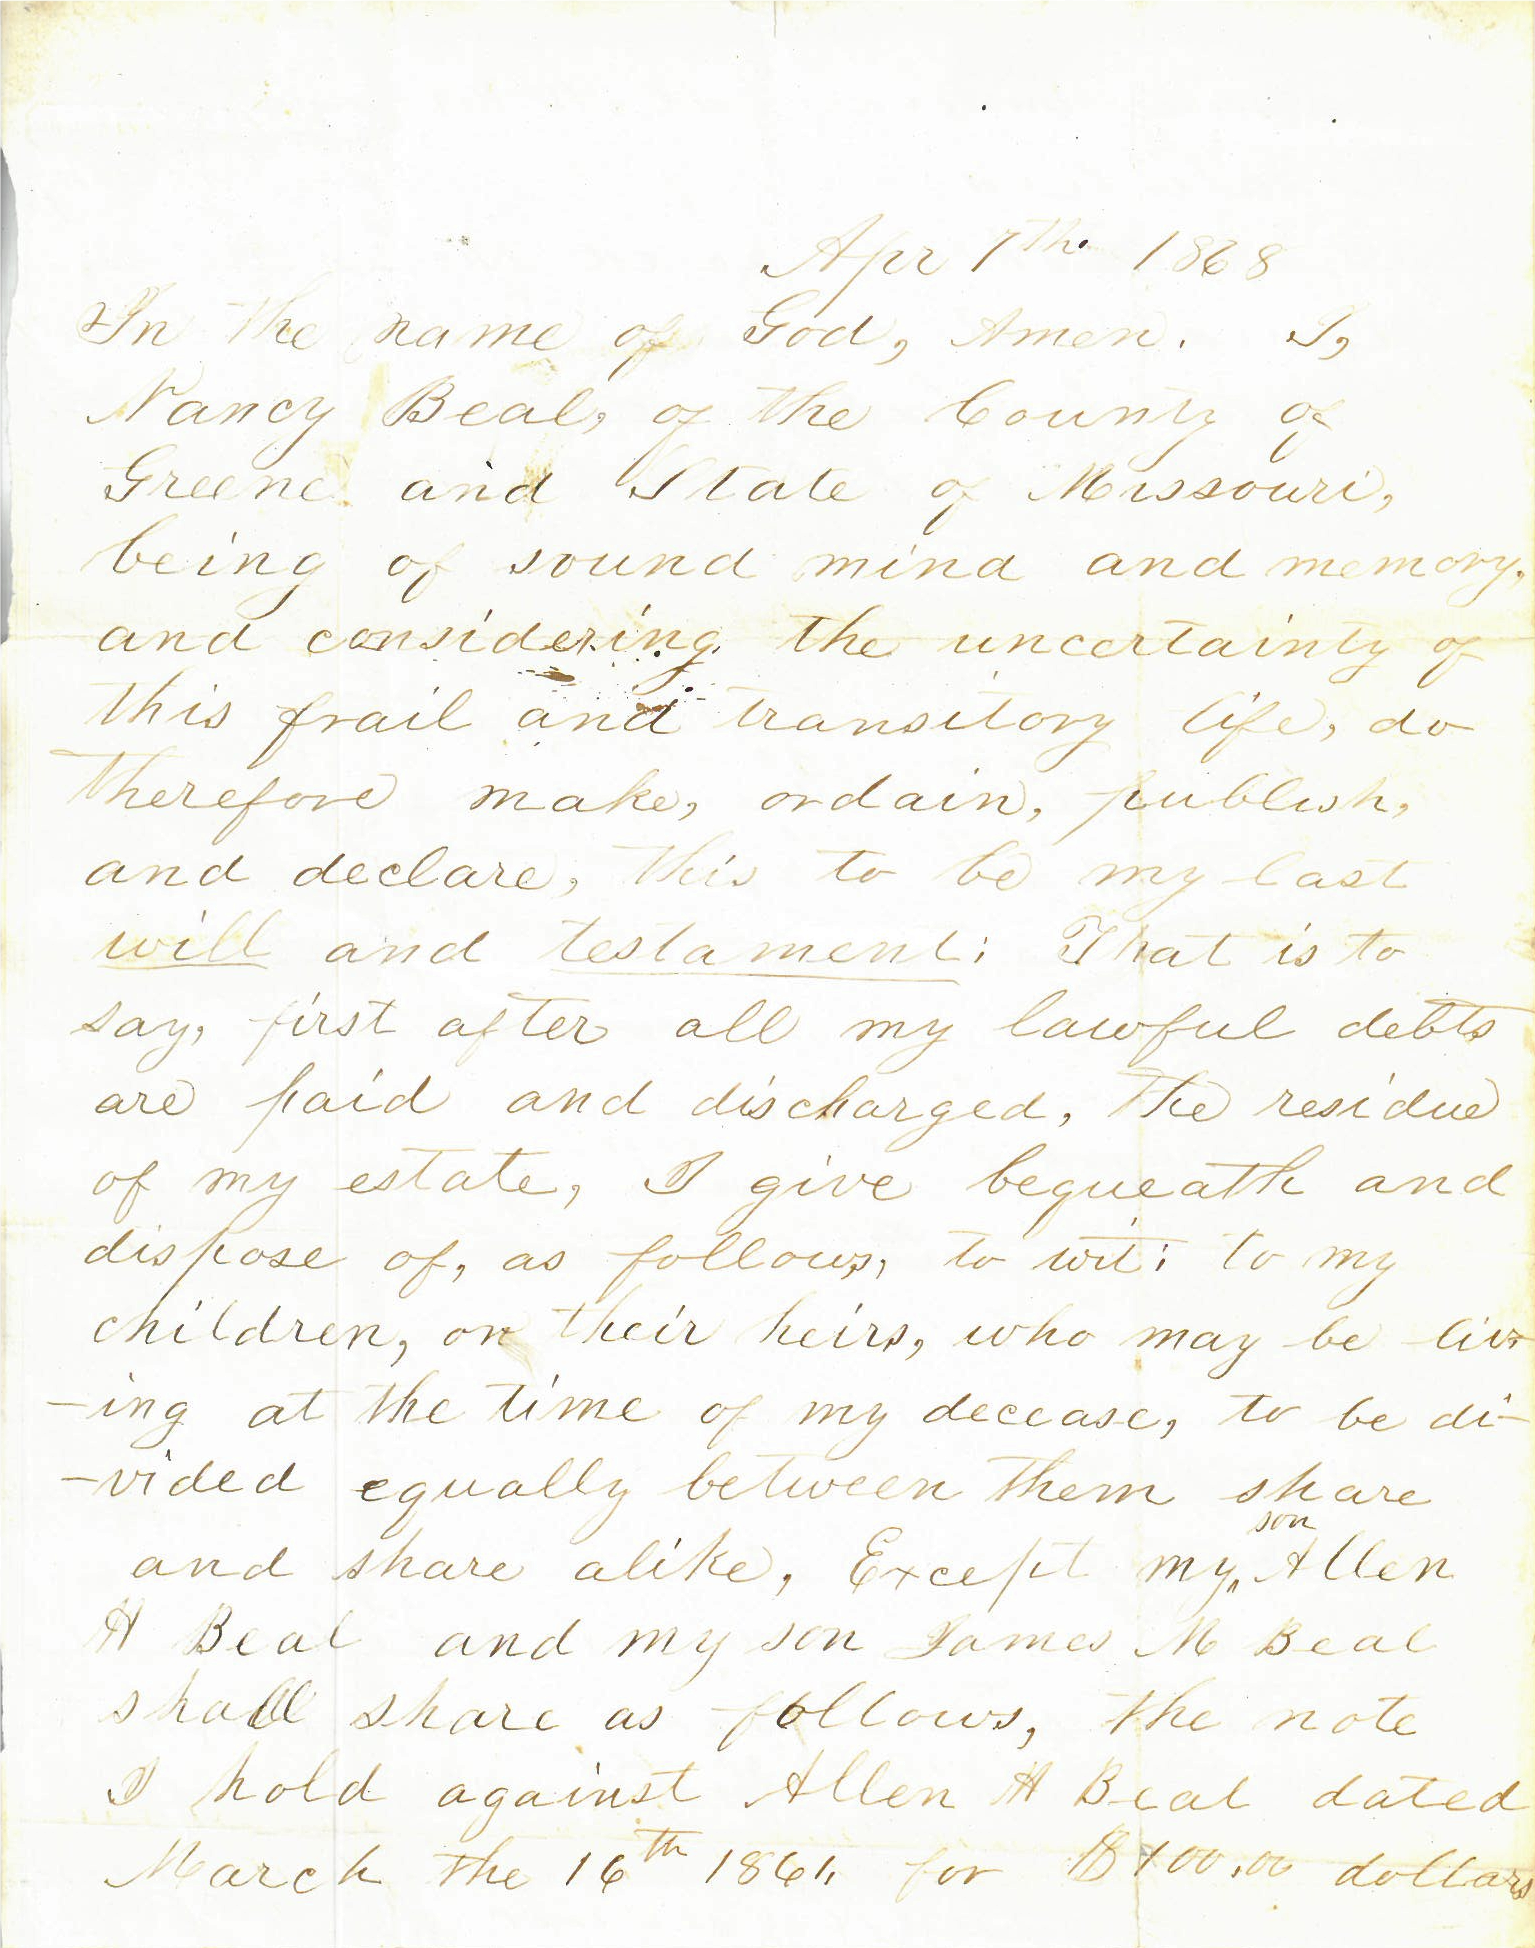 Apr 7th 1868
In the name of God, Amen. I,
Nancy Beal, of the County of
Greene and State of Missouri,
being of sound mind and memory,
and considering the uncertainty of
this frail and transitory life, do
therefore make, ordain, publish,
and declare, this to be my last
will and testament: That is to
say, first after all my lawful debts
are paid and discharged, the residue
of my estate, I give bequeath and
dispose of, as follows, to wit: to my
children, or their heirs, who may be liv-
-ing at the time of my decease, to be di-
-vided equally between them share
and share alike, Except my son Allen
H Beal and my son James M Beal
shall share as follows, the note
I hold against Allen H Beal dated
March the 16th for $100.00 dollars